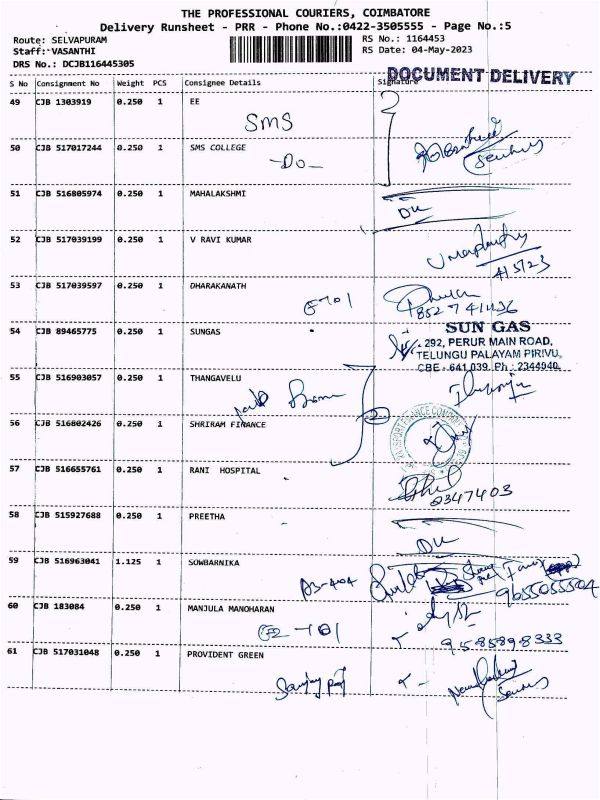 THE PROFESSIONAL COURIERS, COIMBATORE
Delivery Runsheet - PRR - Phone No.:0422-3505555 - Page No.:5
Route: SELVAPURAM
RS No.: 1164453
Staff: VASANTHI
RS Date: 04-May-2023
DRS No.: DCJB116445305
DOCUMENT DELIVERY
S No Consignment No Weight PCS Consignee Details Signature
49 CJB 1303919 0.250 1 EE
SMS
50 CJB 517017244 0.250 1 SMS COLLEGE
-DO-
51 CJB 516805974 0.250 1 MAHALAKSHMI
DL
52 CJB 517039199 0.250 1 V RAVI KUMAR
4/5/23
53 CJB 517039597 0.250 1 DHARAKANATH
54 CJB 89465775 0.250 1 SUNGAS
SUN GAS
292, PERUR MAIN ROAD,
TELUNGU PALAYAM PIRIVU,
CBE - 641 039. Ph : 2344940
55 CJB 516903057 0.250 1 THANGAVELU
56 CJB 516802426 0.250 1 SHRIRAM FINANCE
2
57 CJB 516655761 0.250 1 RANI HOSPITAL
2347403
58 CJB 515927688 0.250 1 PREETHA
DL
59 CJB 516963041 1.125 1 SOWBARNIKA
A3-404
9655055504
60 CJB 183084 0.250 1 MANJULA MANOHARAN
9585898333
61 CJB 517031048 0.250 1 PROVIDENT GREEN